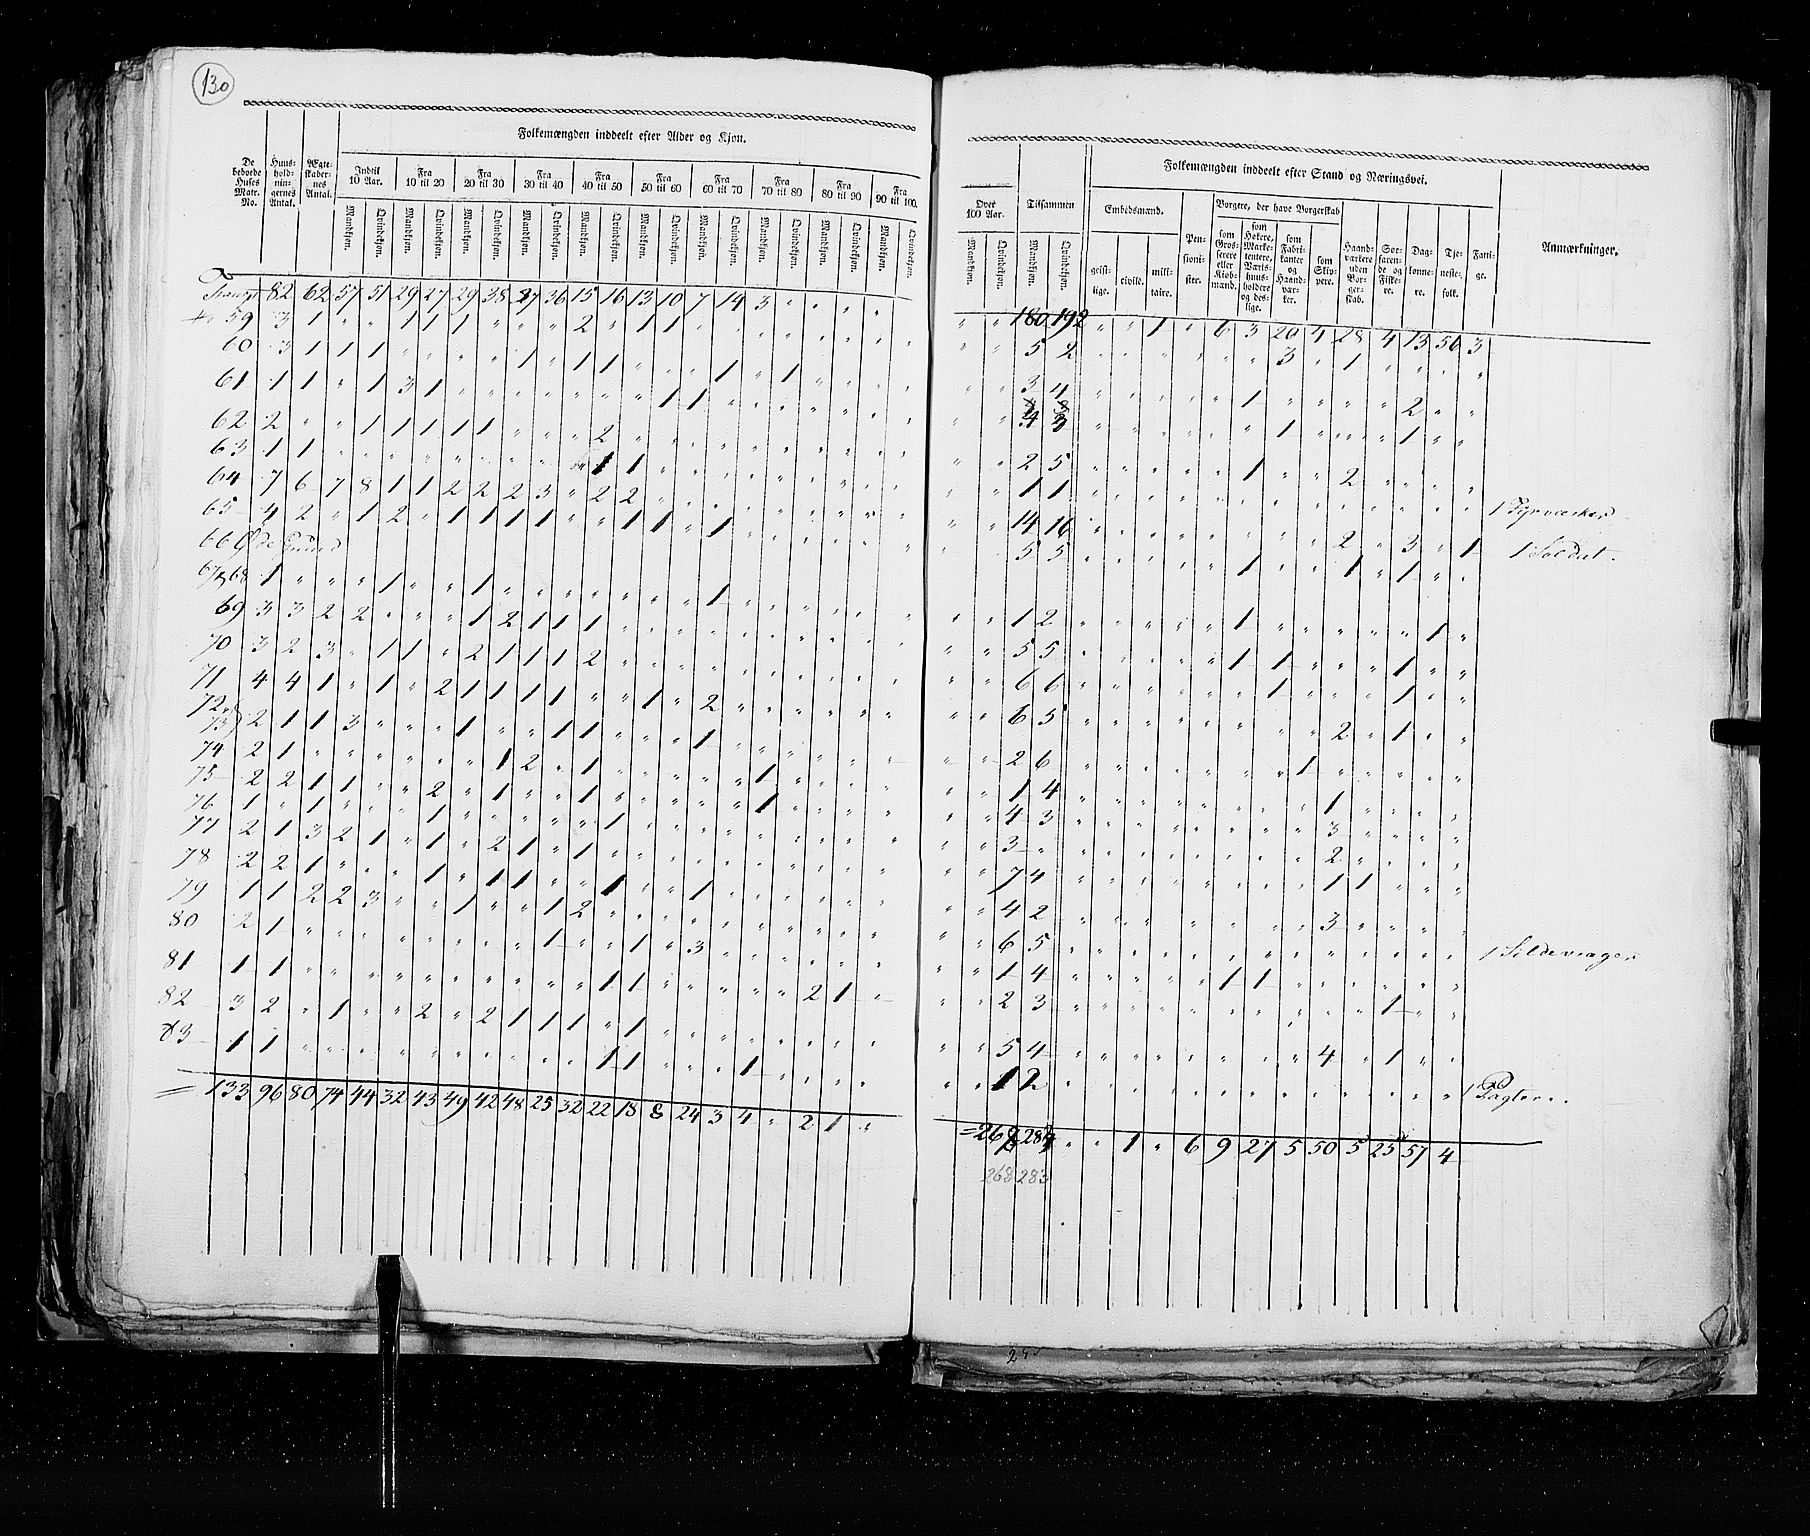 130
Folkemængden inddeelt efter Alder og Kjøn.
De beboede Huses Matr. No. | Huus-hold-nin-gernes Antal. | Ægte-skaber-nes Antal. | Indtil 10 Aar. | Fra 10 til 20 | Fra 20 til 30 | Fra 30 til 40 | Fra 40 til 50 | Fra 50 til 60 | Fra 60 til 70 | Fra 70 til 80 | Fra 80 til 90 | Fra 90 til 100.
Mandkjøn. Qvindekjøn. Mandkjøn. Qvindekjøn. Mandkjøn. Qvindekjøn. Mandkjøn. Qvindekjøn. Mandkjøn. Qvindekjøn. Mandkjøn. Qvindekjøn. Mandkjøn. Qvindekjøn. Mandkjøn. Qvindekjøn. Mandkjøn. Qvindekjøn. Mandkjøn. Qvindekjøn.
Transpt 82 62 57 51 29 27 29 38 27 36 15 16 13 10 7 14 3 " " " "
59 3 1 " " 1 1 1 " " " 2 " 1 1
60 3 1 1 1 " " " " 1 " 1 1 " " " 1 " 1
61 1 1 " 1 3 1 " " " " " " 1 1
62 2 " " 1 1 1 1 1 " " " 2
63 1 1 " " " " " " " " " 1 1
64 7 6 7 8 1 1 2 2 2 3 " 2 2
65 4 2 " 1 2 " 1 1 1 1 " " 1 1 " 1
66 Øde Grund
67 & 68 1 " " " " 1 " " 1 " " " " " " " 1
69 3 3 2 2 " " " 1 2 1 1 1
70 3 2 3 " 1 1 " 2 1 1 1 2
71 4 4 1 " 1 " 2 1 1 1 1 " " 1 " 2
72 &
73 2 1 1 3 " " " 1 " " 1 1 " " " 1
74 2 1 " " " " " " 1 2 " 1 " " " " " 1
75 2 2 1 1 " " 2 " 1 " " 1 " " " " " 1
76 1 " 1 " " " 1 " " " " " 1
77 2 1 3 2 1 " 1 " 2 1 " 1
78 2 2 1 " " " 1 " 1 1 " " 1 " " 1
79 1 1 2 2 3 " " 1 " " 1 2
80 2 1 " " " " " " " " 1 " " 1 " 3
81 1 1 " " " " " " " " " " 1 1 " " " " " 2 1
82 3 2 " 1 " " 2 " 2 1 1 1 " 1
83 1 1 " " " " " " " " " " 1 1 " " " 1
= 133 96 80 74 44 32 43 49 42 48 25 32 22 18 8 24 3 4 " 2 1 "
Folkemængden inddeelt efter Stand og Næringsvei.
Over 100 Aar. | Tilsammen | Embedsmænd. | Pen-sioni-ster. | Borgere, der have Borgerskab | Haand-værkere uden Bor-ger-skab. | Søe-faren-de og Fiske-re. | Dag-lønne-re. | Tje-neste-folk. | Fatti-ge. | Anmærkninger.
Mandkjøn. Qvindekjøn. Mandkjøn. Qvindekjøn. geist-lige. civile. mili-taire. som Gros-serere eller Kiøb-mænd. som Høkere, Marke-tentere, Værts-huus-holdere og des-lige. som Fabri-kanter og Haand-vær-ker. som Skip-pere.
" " 180 192 " " 1 " 6 3 20 4 28 4 13 56 3
" " 5 2 " " " " " " 3 " 1
" " 3 4 " " " " " 1 " " " " 2
4 3 " " " " " " 1 " " " 1
" " 2 5 " " " " " 1 " " 2
" " 1 1 1 Fyrvæsker
" " 14 16 " " " " " " " " 2 " 3 " 1 1 Soldat.
5 5 " " " " " 1 " " 1 " 1
" " 1 2 " " " " " 1 " " " " " 1
" " 5 5 " " " " " 1 1 " " " 1
" " 6 6 " " " " " " 1 " " " 1
" " 6 5 " " " " " " " " 2 " 1
" " 2 6 " " " " " " " 1
" " 1 4 " " " " " " " " 1
4 3 " " " " " " " " 3
" " 3 " " " " " " " " " 2
7 4 " " " " " " " " 1 1
" " 4 2 " " " " " " " " 3
" " 6 5 1 Sildevrager
" " 1 4 " " " " " 1 1
" " 2 3 " " " " " " " " " " 1
" " 5 4 " " " " " " " " 4 " 1
" " 1 2 1 Pagter.
= 268 283 " " 1 " 6 9 27 5 50 5 25 57 4
268 283